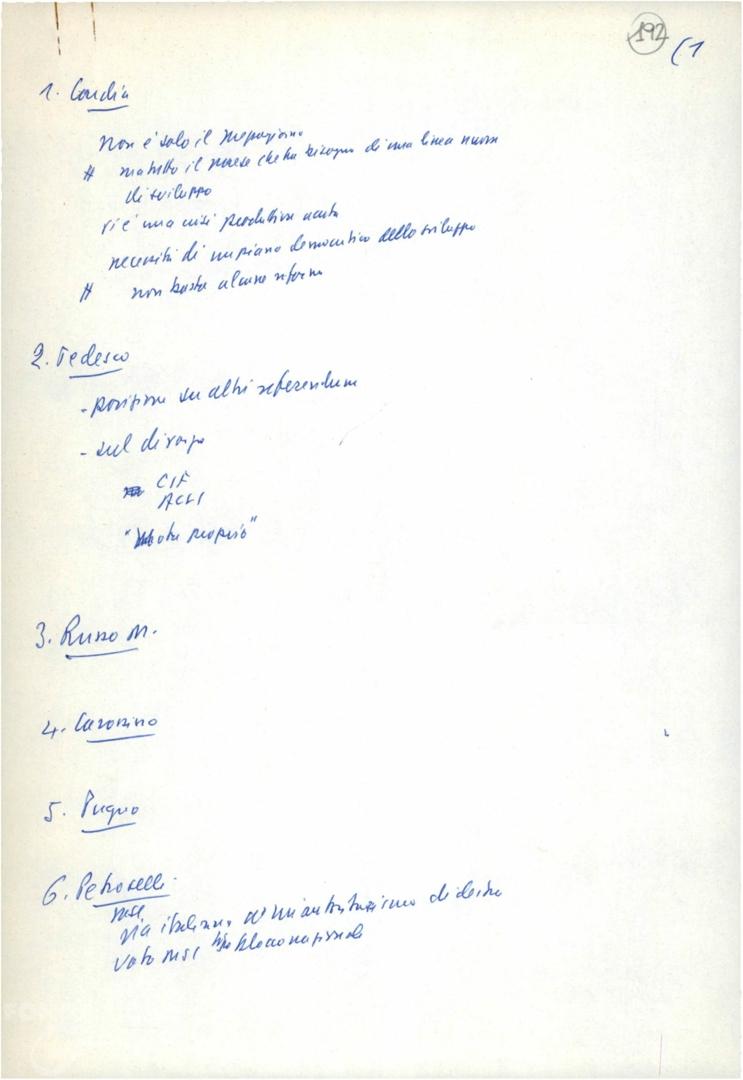 192 (1
1. Gardia
Non è solo il Mezzogiorno
# ma tutto il paese che ha bisogno di una linea nuova
di sviluppo
vi è una crisi produttiva acuta
necessità di un piano democratico dello sviluppo
# non basta alcune riforme
2. Tedesco
- posizione su altri referendum
- sul divorzio
CIF
ACLI
" motu proprio"
3. Russo M.
4. Carossino
5. Pugno
6. Petroselli
MSI
via italiana all'autoritarismo di destra
voto MSI blocco nazionale